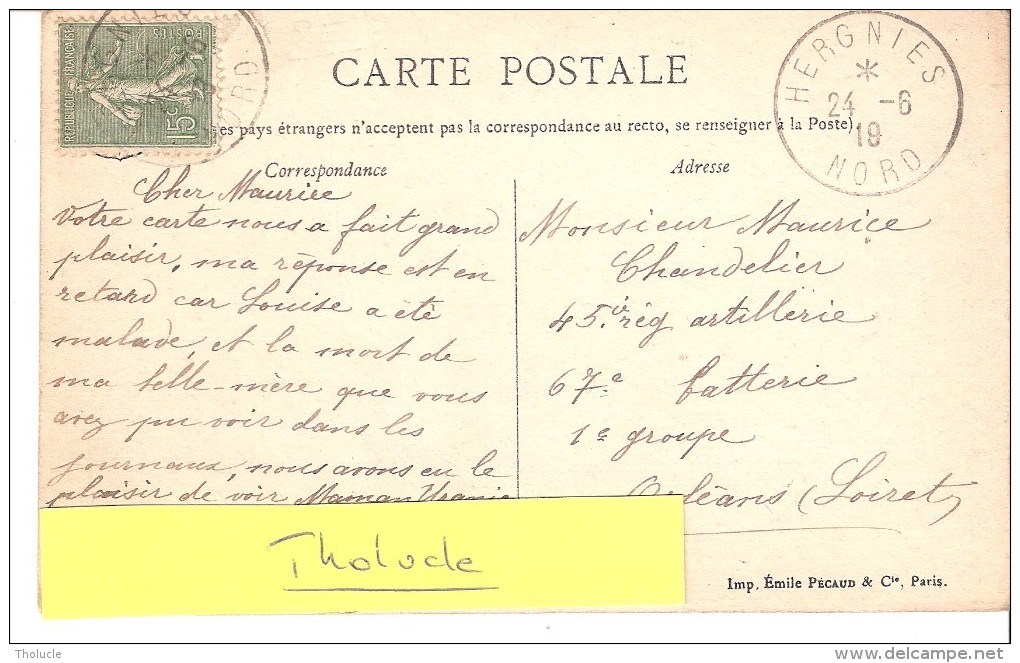 RÉPUBLIQUE FRANÇAISE
POSTES
15c
HERGNIES
24 -6
19
NORD
NORD
CARTE POSTALE
es pays étrangers n'acceptent pas la correspondance au recto, se renseigner à la Poste)
Correspondance
Cher Maurice
Votre carte nous a fait grand
plaisir, ma réponse est en
retard car Louise a été
malade, et la mort de
ma belle-mère que vous
avez pu voir dans les
journaux, nous avons eu le
plaisir de voir Maman Uranie
Adresse
Monsieur Maurice
Chandelier
45e rég artillerie
67e batterie
1e groupe
Orléans (Loiret)
Tholucle
Imp. Émile PÉCAUD & Cie, Paris.
Tholucle
www.delcampe.net